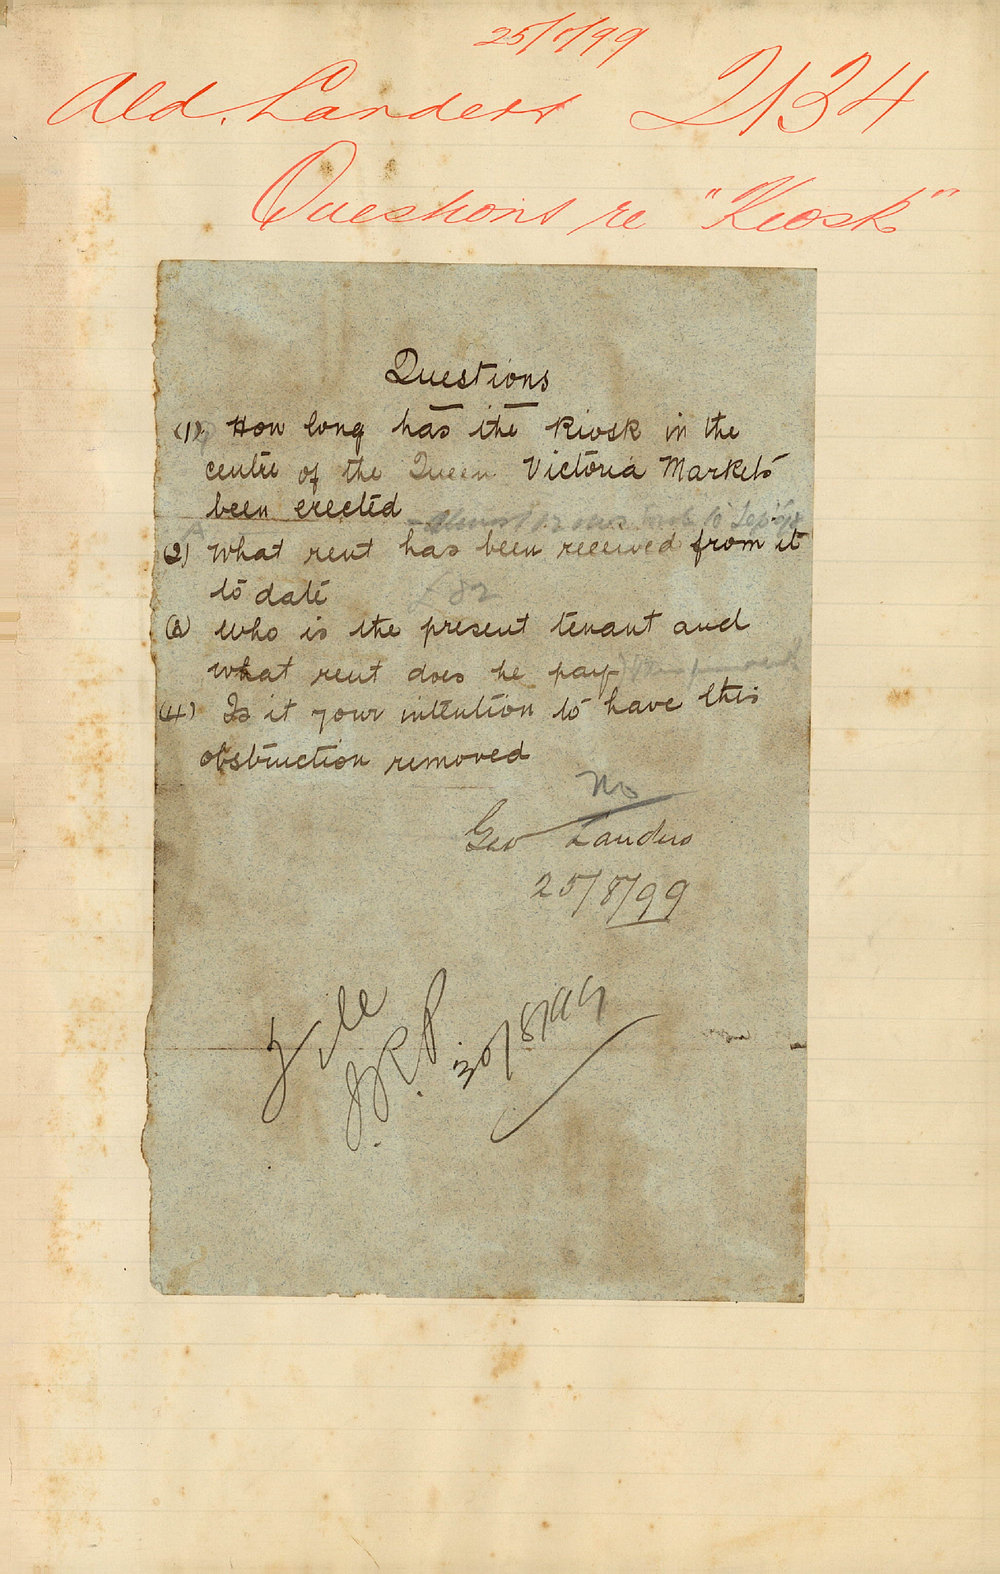 25/7/99
Ald. Landers 2134
Questions re "Kiosk"
Questions
(1) How long has the Kiosk in the
centre of the Queen Victoria Markets
been erected
(2) What rent has been received from it
to date £82
(3) Who is the present tenant and
what rent does he pay
(4) Is it your intention to have this
obstruction removed
No
Geo Landers
25/8/99
File
J.R.P. 30/8/99